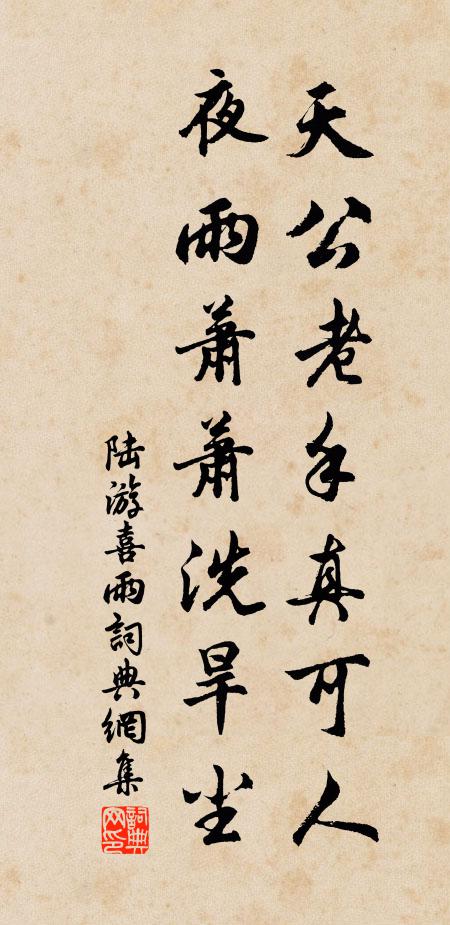 天公老手真可人
夜雨蕭蕭洗旱尘
陆游喜雨詞典網集
詞典网印